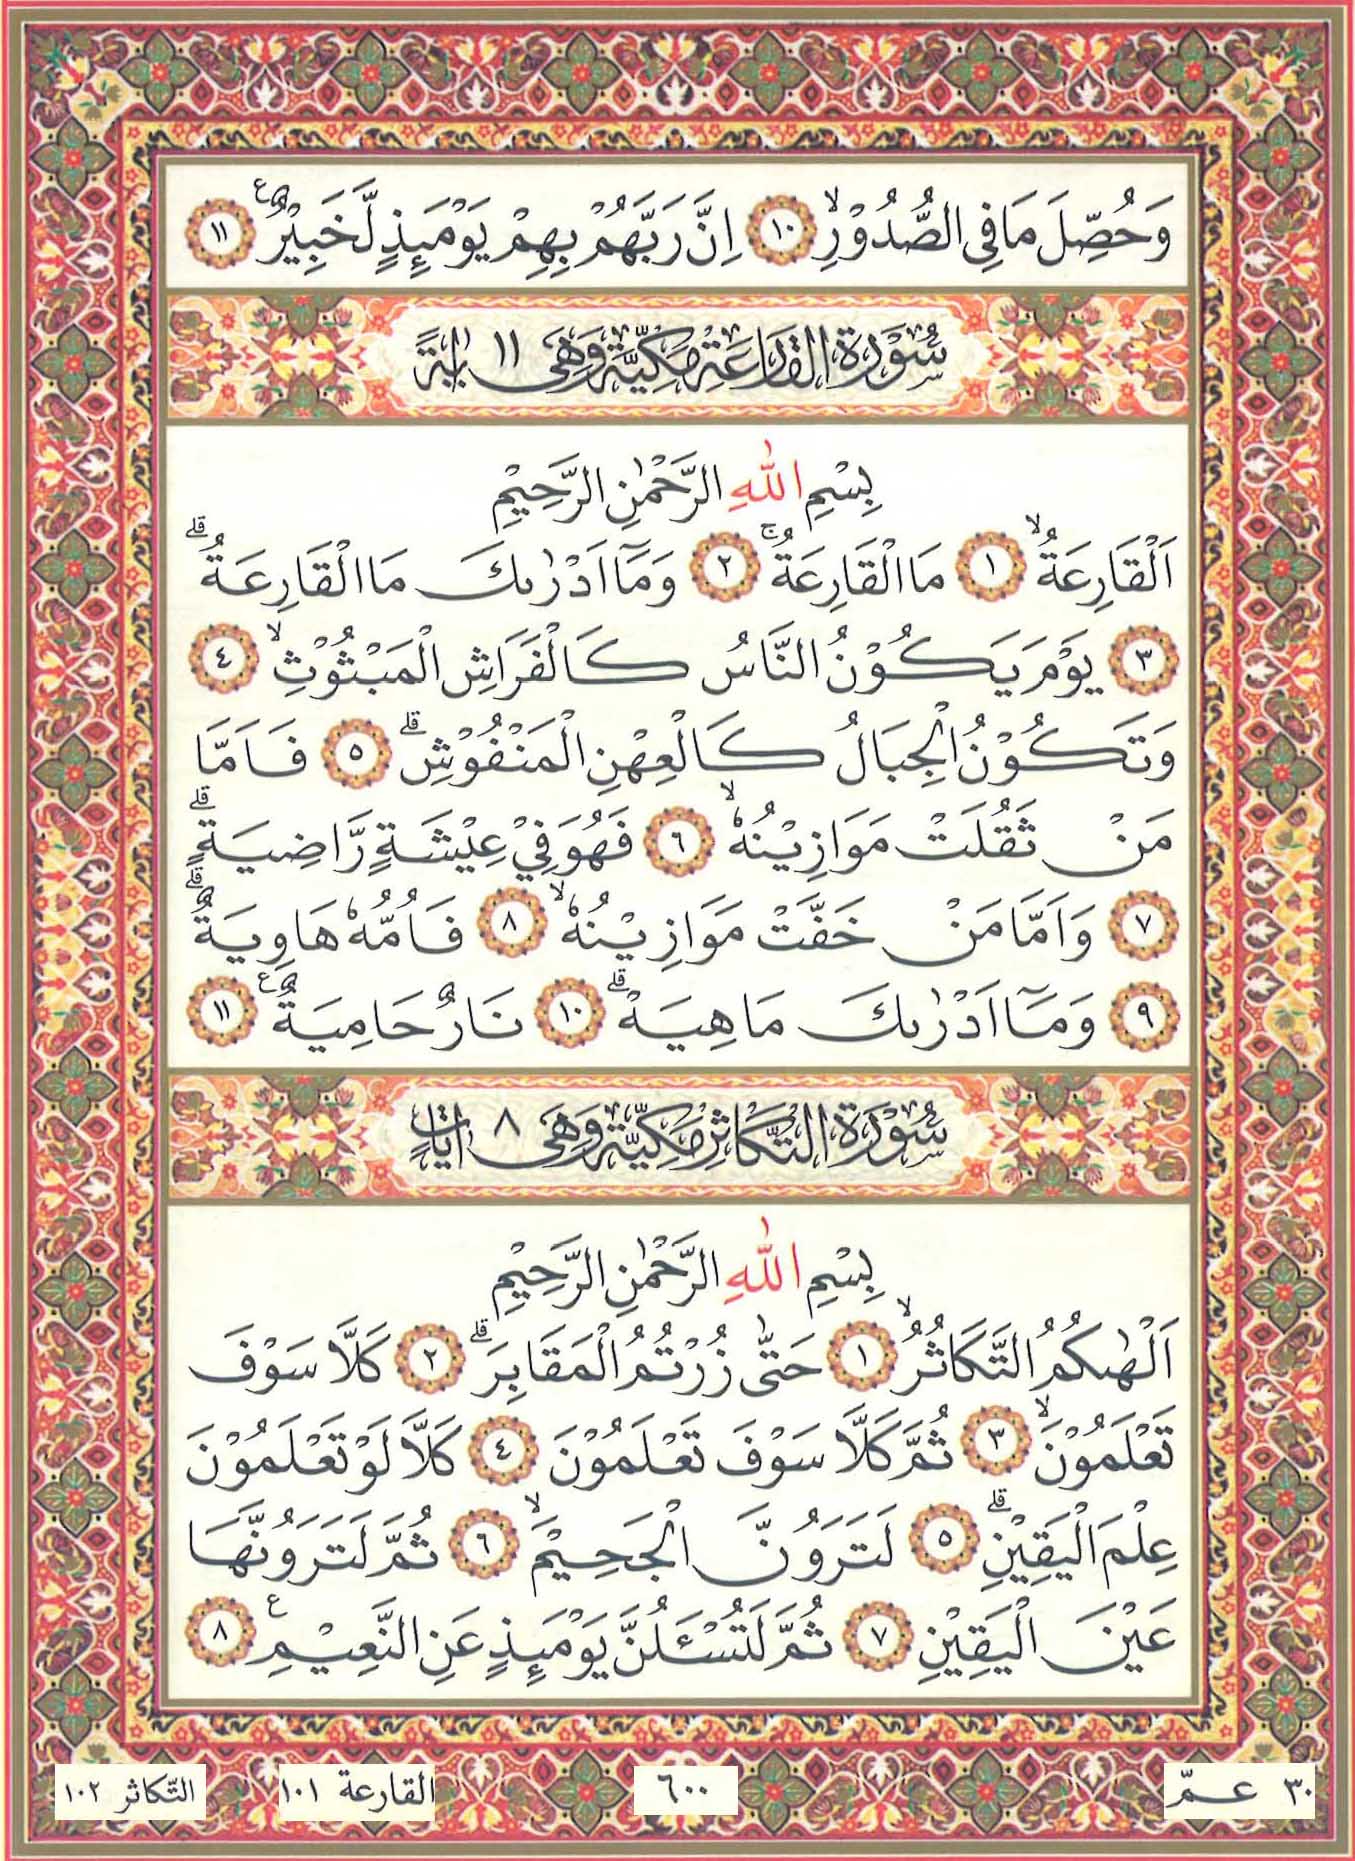 وَحُصِّلَ مَا فِي الصُّدُوْرِۙ ١٠ اِنَّ رَبَّهُمْ بِهِمْ يَوْمَئِذٍ لَّخَبِيْرٌࣖ ١١
سُوْرَةُ الْقَارِعَةِ مَكِّيَّةٌ وَهِيَ ١١ اٰيَةً
بِسْمِ اللّٰهِ الرَّحْمٰنِ الرَّحِيْمِ
اَلْقَارِعَةُۙ ١ مَا الْقَارِعَةُۚ ٢ وَمَآ اَدْرٰىكَ مَا الْقَارِعَةُۗ
٣ يَوْمَ يَكُوْنُ النَّاسُ كَالْفَرَاشِ الْمَبْثُوْثِۙ ٤
وَتَكُوْنُ الْجِبَالُ كَالْعِهْنِ الْمَنْفُوْشِۗ ٥ فَاَمَّا
مَنْ ثَقُلَتْ مَوَازِيْنُهٗۙ ٦ فَهُوَ فِيْ عِيْشَةٍ رَّاضِيَةٍۗ
٧ وَاَمَّا مَنْ خَفَّتْ مَوَازِيْنُهٗۙ ٨ فَاُمُّهٗ هَاوِيَةٌۗ
٩ وَمَآ اَدْرٰىكَ مَا هِيَهْۗ ١٠ نَارٌ حَامِيَةٌࣖ ١١
سُوْرَةُ التَّكَاثُرِ مَكِّيَّةٌ وَهِيَ ٨ اٰيَاتٍ
بِسْمِ اللّٰهِ الرَّحْمٰنِ الرَّحِيْمِ
اَلْهٰىكُمُ التَّكَاثُرُۙ ١ حَتّٰى زُرْتُمُ الْمَقَابِرَۗ ٢ كَلَّا سَوْفَ
تَعْلَمُوْنَۙ ٣ ثُمَّ كَلَّا سَوْفَ تَعْلَمُوْنَ ٤ كَلَّا لَوْ تَعْلَمُوْنَ
عِلْمَ الْيَقِيْنِۗ ٥ لَتَرَوُنَّ الْجَحِيْمَۙ ٦ ثُمَّ لَتَرَوُنَّهَا
عَيْنَ الْيَقِيْنِ ٧ ثُمَّ لَتُسْـَٔلُنَّ يَوْمَئِذٍ عَنِ النَّعِيْمِࣖ ٨
٣٠ عـمّ
٦٠٠
القارعة ١٠١
التّكاثر ١٠٢